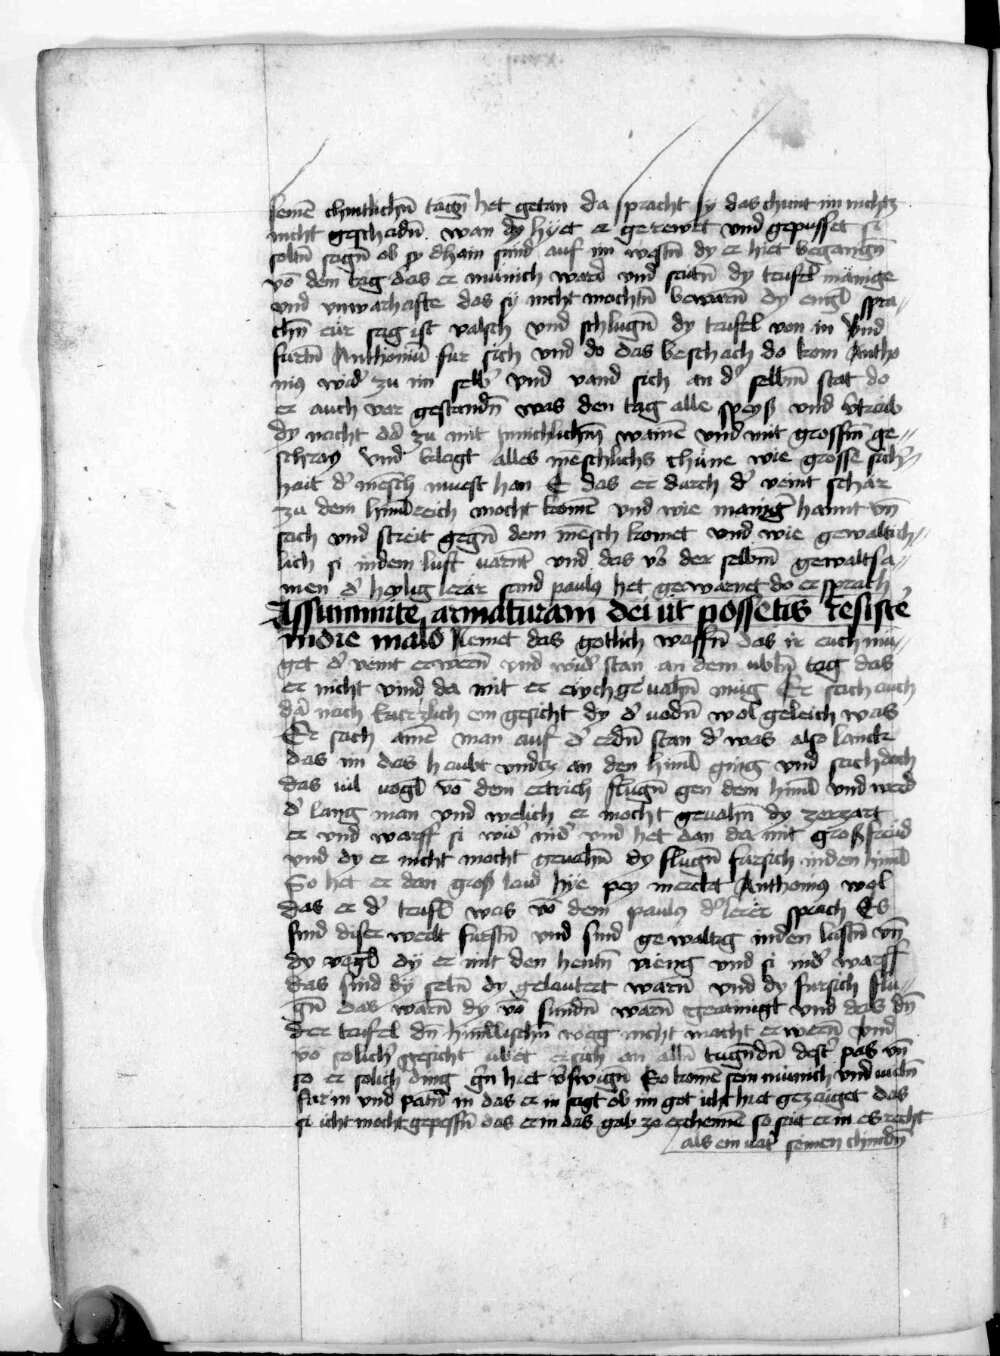 seinē chintlichñ tagñ het getan da spracht sy das chumt im nichtz
nicht geschadñ. wan dy hyet er gerewet vnd gepusset si
soltñ sagñ ob sy dhain sund auf im westñ dy er hiet begangñ
vō dem tag das er münich ward vnd saitñ dy teufel mänige
vnd vnwarhafte das sy nicht mochtñ bewarñ dy engl spra-
chñ eür sag ist valsch vnd schlugñ dy teufel von in Vnd
furtñ Anthoniū fur sich vnd do das beschach do kom Antho
nius wid' zu im selb' vnd vand sich an d' selbñ stat do
er auch vor gestandñ was den tag alle speyß vnd vtraib
dy nacht od' zu mit innichlichñ wainē vnd mit grossm̄ ge-
schray Vnd klagt alles mēschlichs chüne wie grosse sich'-
hait d' mēsch muest han E das er durch d' veint schar
zu dem himelreich mocht komē vnd wie maniḡ hannt vñ
sach vnd streit gegñ dem mēsch komet vnd wie gewaltich-
lich si in dem luft uarnt vnd das vō der selbñ gewaltsa-
men d' heylig lerär sand paulus het gewarnet do er sprach
Assummite armaturam dei ut possetis resiste'
in die malo Nemet das gotlich waffñ das ir euch mü-
get d' veint erwerñ vnd wid' stan an dem ublñ tag das
er nicht vind da mit er eych geuahñ müg Er sach auch
dā nach kurczlich ein gesicht dy d' uodñ wol geleich was
Er sach ainē man auf d' erdñ stan d' was also lanck
das im das haubt vncz an den himl ging vnd sach doch
das uil uogl vō dem ertrich flugñ gen dem himl vnd werd
d' lang man vnd welich er mocht geuahñ dy zerzart
er vnd warff si wid' nid' vnd het dan da mit groß freüd
vnd dy er nicht mocht geuahñ dy flugñ fursich in den himl
So het er dan groß laid hye pey merckt Anthonius wol
das er d' teufl was vō dem paulus d' lerär sprach Es
sind diser welt furstñ vnd sind gewaltig in den luftñ vñ
dy vogl dy er mit den hentñ vieng vnd si nid' warff
das sind dy selñ dy gelautert warñ vnd dy fursich flu-
gñ das warñ dy vō sundñ warñ gerainigt vnd das dñ
der teufel dñ himlischñ weg nicht macht erwerñ Vnd
vō solich' gesicht übet er sich an alln̄ tugndñ dest' pas vñ
so er solich ding gñ hiet v'swign̄ So komē sein münich vnd uieln̄
für in vnd patñ in das er in sagt ob im got icht hiet gezaiget das
si icht mocht gepessñ das er in das gab ze erchennē so sait er in es recht
als ein uat' seinen chindñ